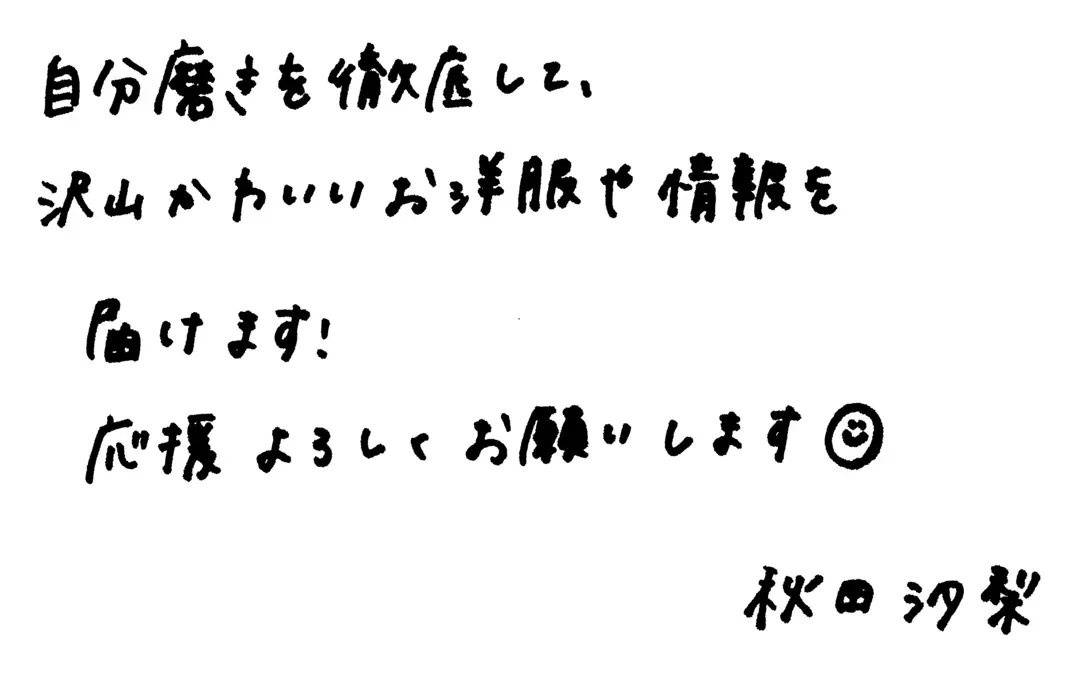 自分磨きを徹底して、
沢山かわいいお洋服や情報を
届けます!
応援よろしくお願いします☺
秋田汐梨